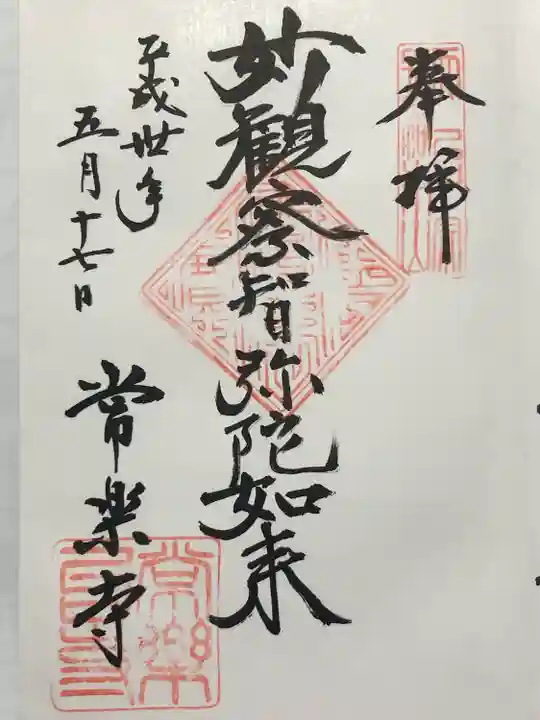 奉拝
妙観察智弥陀如来
平成卅年
五月十七日
常楽寺
常樂